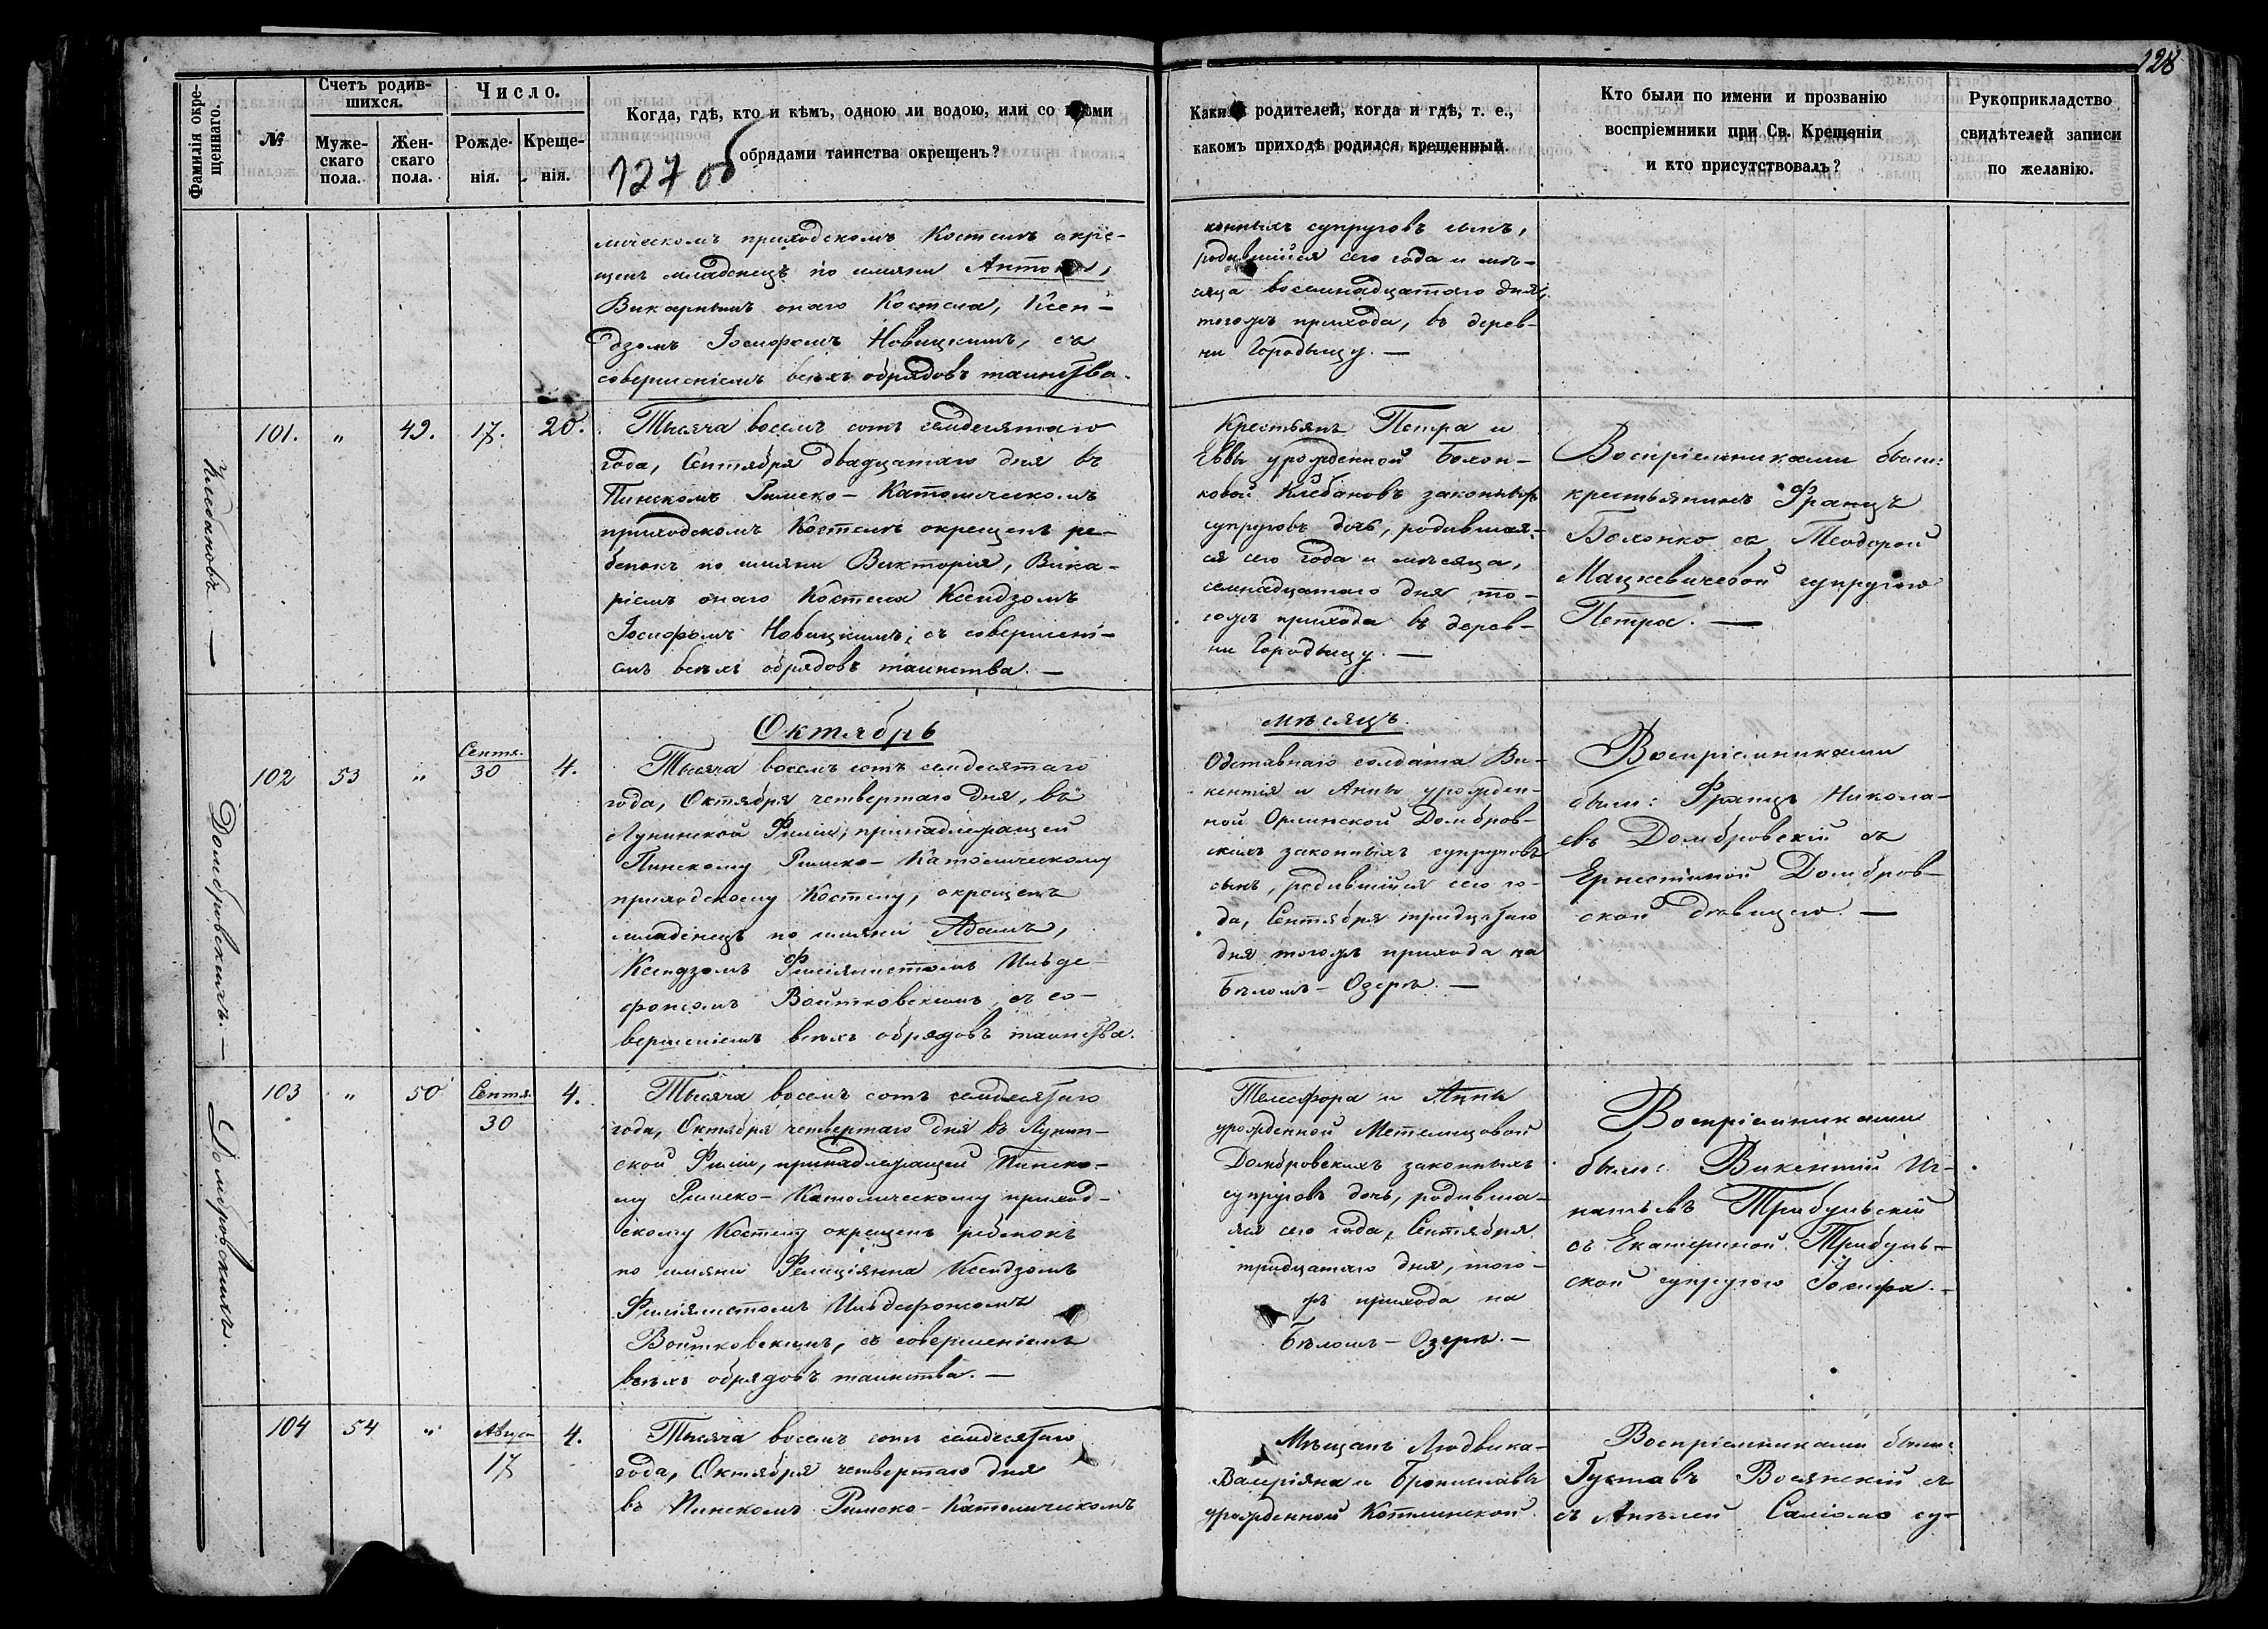 128
Фамилія окре-
щеннаго.
№
Счетъ родив-
шихся.
Муже-
скаго
пола.
Жен-
скаго
пола.
Число.
Рожде-
нія.
Креще-
нія.
Когда, гдѣ, кто и кѣмъ, одною ли водою, или со всѣми
обрядами таинства окрещенъ?
127 об
Какихъ родителей, когда и гдѣ, т. е.,
какомъ приходѣ родился крещенный.
Кто были по имени и прозванію
воспріемники при Св. Крещеніи
и кто присутствовалъ?
Рукоприкладство
свидѣтелей записи
по желанію.
лическомъ приходскомъ Костелѣ окре-
щенъ младенецъ по имяни Антоній,
Викарнымъ онаго Костела, Ксен-
дзомъ Іосифомъ Новицкимъ, съ
совершеніемъ всѣхъ обрядовъ таинства.
конныхъ супруговъ сынъ,
родившійся сего года и мѣ-
сяца восемнадцатаго дня,
тогожъ прихода, въ дерев-
ни Городищу. —
Клебановъ. —
101.
"
49.
17.
20.
Тысяча восемь сотъ семдесятаго
года, Сентября двадцатаго дня въ
Пинскомъ Римско-Католическомъ
приходскомъ Костелѣ окрещенъ ре-
бенокъ по имяни Викторія, Вика-
ріемъ онаго Костела Ксендзомъ
Іосифомъ Новицкимъ, съ совершені-
емъ всѣхъ обрядовъ таинства. —
Крестьянъ Петра и
Еввы урожденной Болон-
ковой Клебановъ законныхъ
супруговъ дочь, родившая-
ся сего года и мѣсяца,
семнадцатаго дня то-
гожъ прихода въ дерев-
ни Городищу. —
Воспріемниками были:
крестьянинъ Францъ
Болонко съ Теодорой
Мацкевичевой супругою
Петра. —
Домбровскихъ. —
Октябрь
мѣсяцъ.
102
53
"
Сентя.
30
4.
Тысяча восемь сотъ семдесятаго
года, Октября четвертаго дня, въ
Лунинской Филіи, принадлежащей
Пинскому Римско-Католическому
приходскому Костелу, окрещенъ
младенецъ по имяни Адамъ,
Ксендзомъ Филіялистомъ Ильде-
фонсомъ Войтковскимъ, съ со-
вершеніемъ всѣхъ обрядовъ таинства.
Отставнаго солдата Ви-
кентія и Анны урожден-
ной Орлинской Домбров-
скихъ законныхъ супруговъ
сынъ, родившійся сего го-
да, Сентября тридцатаго
дня тогожъ прихода на
Бѣломъ-Озерѣ. —
Воспріемниками
были: Францъ Никола-
евъ Домбровскій съ
Ернестиной Домбров-
ской дѣвицею. —
Домбровскихъ.
103
"
50
Сентя.
30
4.
Тысяча восемь сотъ семдесятаго
года, Октября четвертаго дня въ Лунин-
ской Филіи, принадлежащей Пинско-
му Римско-Католическому приход-
скому Костелу окрещенъ ребенокъ
по имяни Фелиціянна Ксендзомъ
Филіялистомъ Ильдефонсомъ
Войтковскимъ, съ совершеніемъ
всѣхъ обрядовъ таинства. —
Телесфора и Анны
урожденной Метелицовой
Домбровскихъ законныхъ
супруговъ дочь, родивша-
яся сего года, Сентября
тридцатаго дня, того-
жъ прихода на
Бѣломъ-Озерѣ. —
Воспріемниками
были: Викентій Иг-
натьевъ Трибульскій
съ Екатериной Трибуль-
ской супругою Іосифа. —
104
54
"
Август
17
4.
Тысяча восемь сотъ семдесятаго
года, Октября четвертаго дня
въ Пинскомъ Римско-Католическомъ
Мѣщанъ Людвика-
Валеріяна и Брониславы
урожденной Котлинской
Воспріемниками были:
Густавъ Волянскій съ
съ Анелей су-